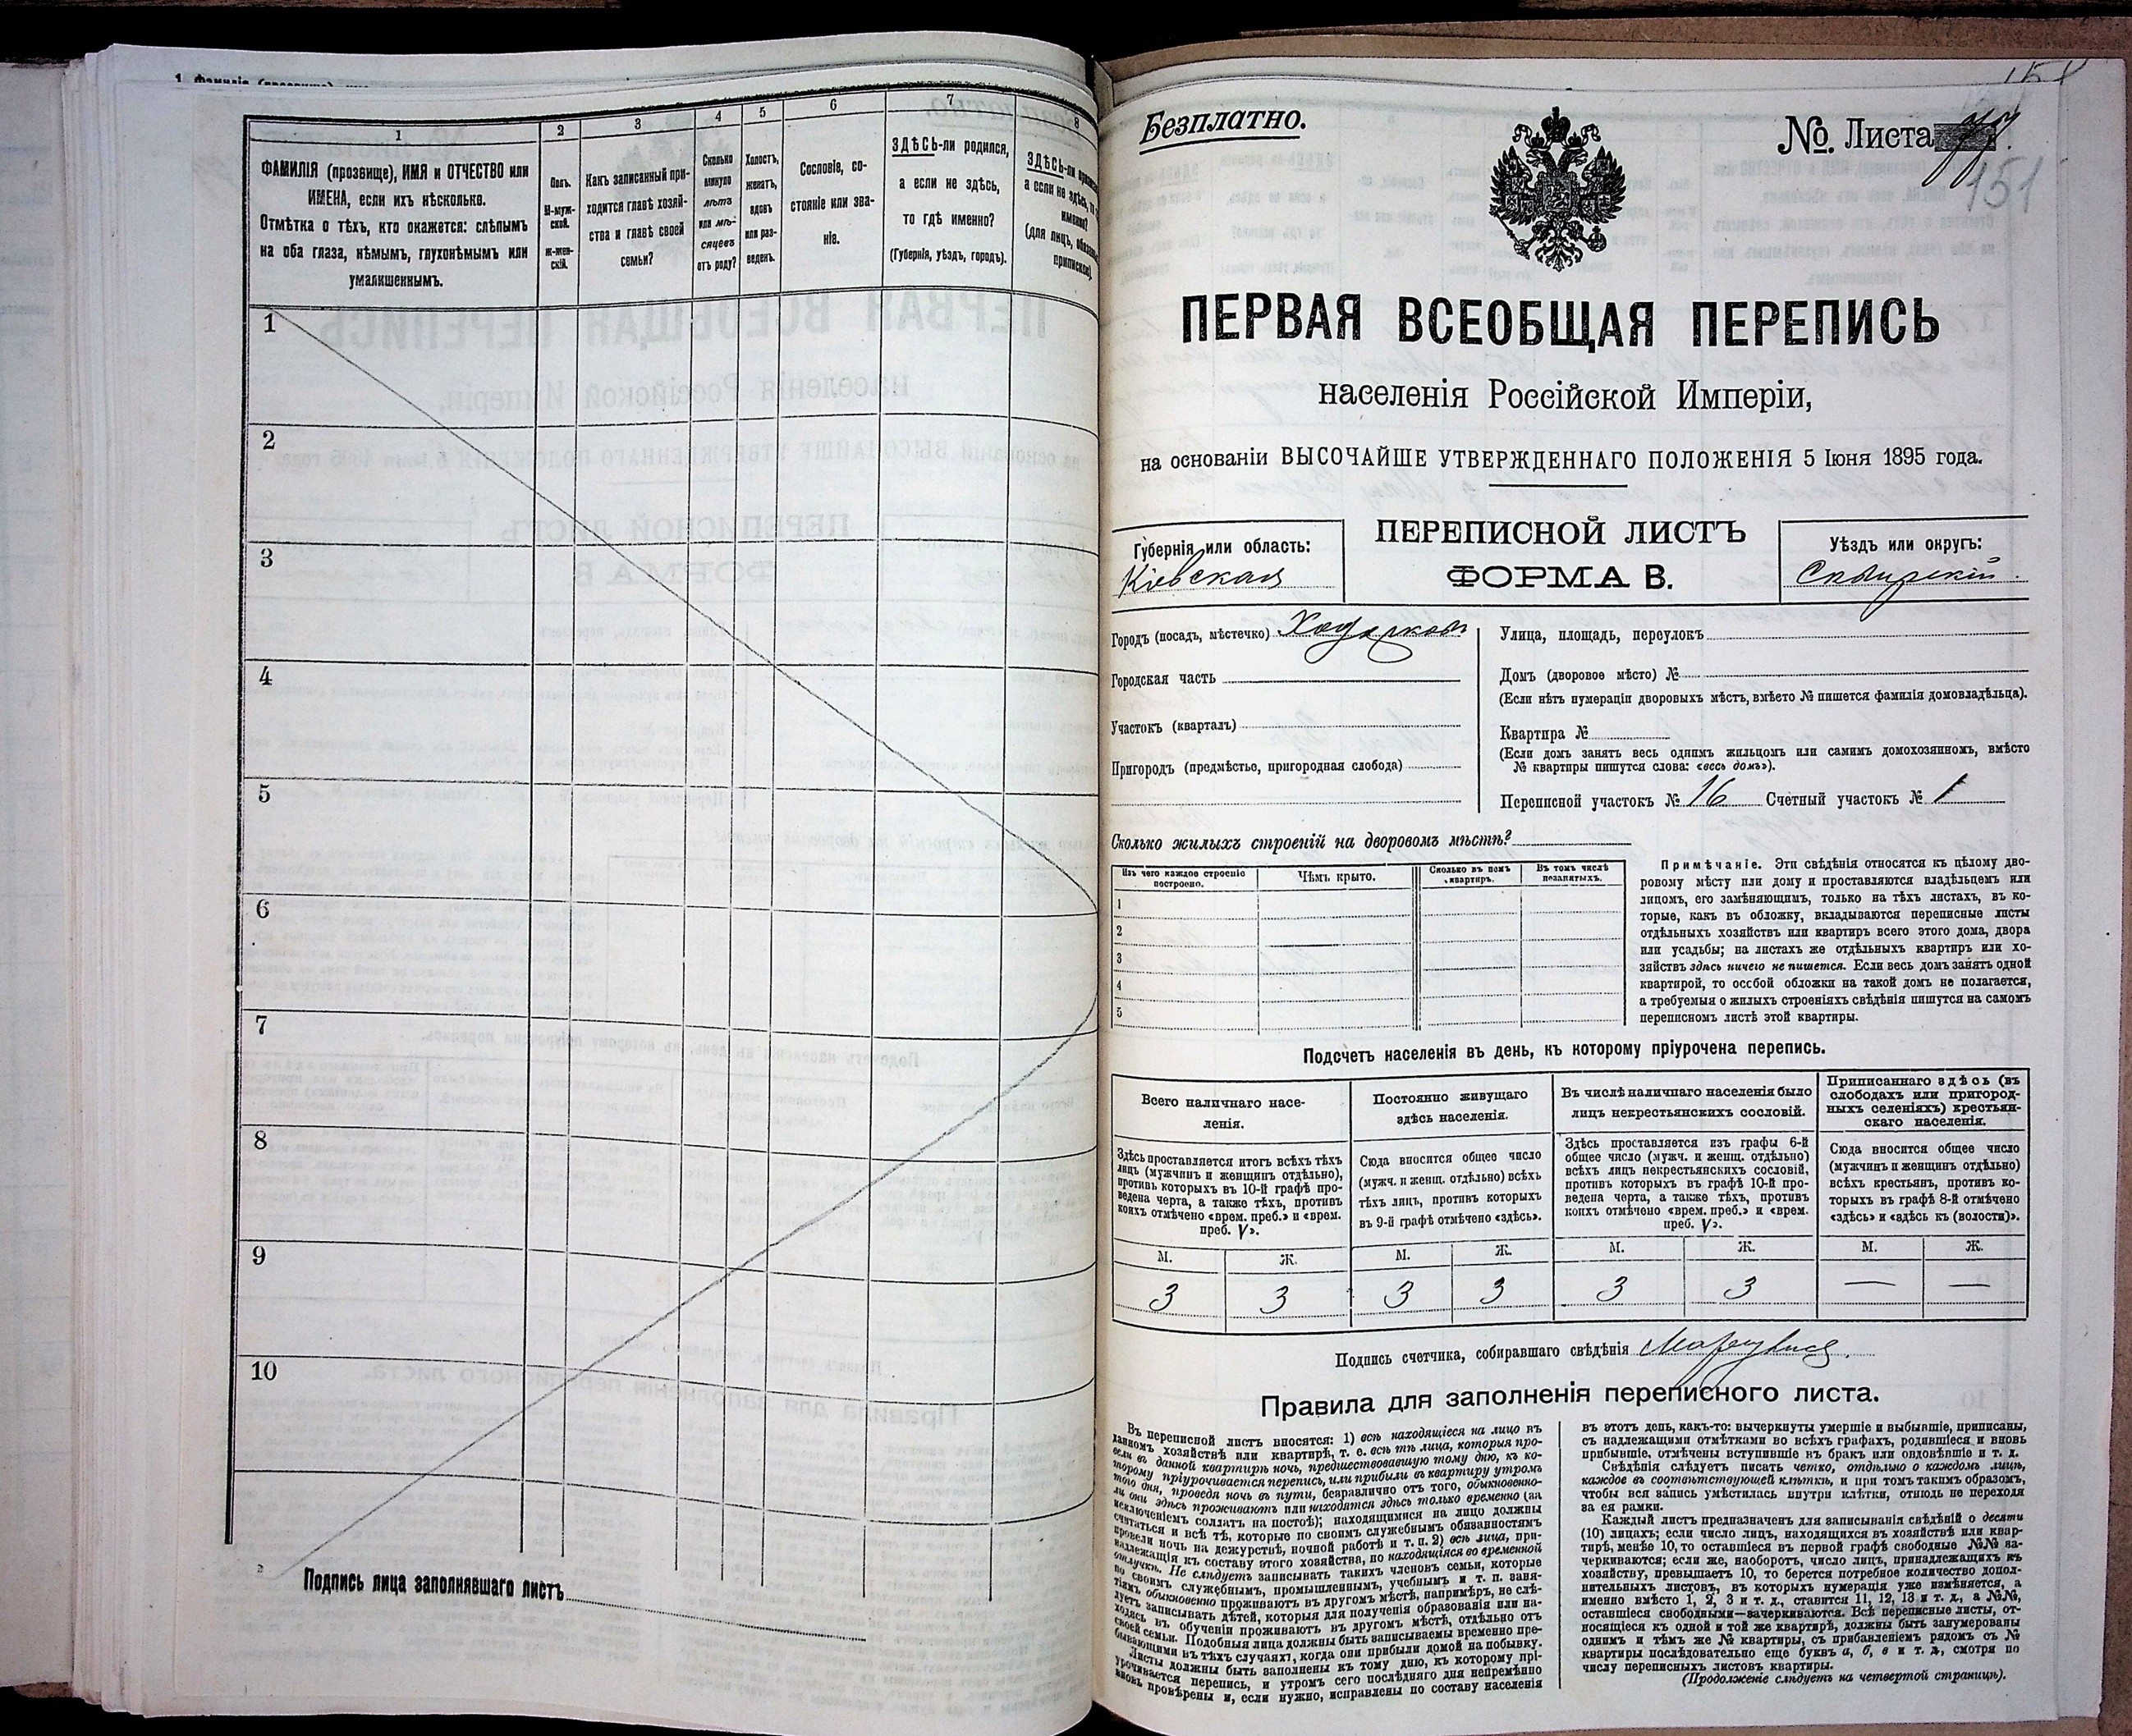 1 2 3 4 5 6 7 8
ФАМИЛІЯ (прозвище), ИМЯ и ОТЧЕСТВО или
ИМЕНА, если ихъ нѣсколько.
Отмѣтка о тѣхъ, кто окажется: слѣпымъ
на оба глаза, нѣмымъ, глухонѣмымъ или
умалишеннымъ.
Полъ.
М-муж-
ской.
Ж-жен-
скій.
Какъ записанный при-
ходится главѣ хозяй-
ства и главѣ своей
семьи?
Сколько
минуло
лѣтъ
или мѣ-
сяцевъ
отъ роду?
Холостъ,
женатъ,
вдовъ
или раз-
веденъ.
Сословіе, со-
стояніе или зва-
ніе.
ЗДѢСЬ-ли родился,
а если не здѣсь,
то гдѣ именно?
(Губернія, уѣздъ, городъ).
ЗДѢСЬ-ли
а если не здѣсь,
именно?
(для лицъ,
1
2
3
4
5
6
7
8
9
10
Подпись лица заполнявшаго листъ
Безплатно.
№ Листа
151
ПЕРВАЯ ВСЕОБЩАЯ ПЕРЕПИСЬ
населенія Россійской Имперіи,
на основаніи ВЫСОЧАЙШЕ УТВЕРЖДЕННАГО ПОЛОЖЕНІЯ 5 Іюня 1895 года.
Губернія или область:
Кіевская
ПЕРЕПИСНОЙ ЛИСТЪ
ФОРМА В.
Уѣздъ или округъ:
Сквирскій
Городъ (посадъ, мѣстечко) Ходорковъ
Городская часть
Участокъ (кварталъ)
Пригородъ (предмѣстье, пригородная слобода)
Улица, площадь, переулокъ
Домъ (дворовое мѣсто) №
(Если нѣтъ нумераціи дворовыхъ мѣстъ, вмѣсто № пишется фамилія домовладѣльца).
Квартира №
(Если домъ занятъ весь однимъ жильцомъ или самимъ домохозяиномъ, вмѣсто
№ квартиры пишутся слова: «весь домъ»).
Переписной участокъ № 16 Счетный участокъ № 1
Сколько жилыхъ строеній на дворовомъ мѣстѣ?
Изъ чего каждое строеніе
построено.
Чѣмъ крыто.
Сколько въ немъ
квартиръ.
Въ томъ числѣ
незанятыхъ.
1
2
3
4
5
Примѣчаніе. Эти свѣдѣнія относятся къ цѣлому дво-
ровому мѣсту или дому и проставляются владѣльцемъ или
лицомъ, его замѣняющимъ, только на тѣхъ листахъ, въ ко-
торые, какъ въ обложку, вкладываются переписные листы
отдѣльныхъ хозяйствъ или квартиръ всего этого дома, двора
или усадьбы; на листахъ же отдѣльныхъ квартиръ или хо-
зяйствъ здѣсь ничего не пишется. Если весь домъ занятъ одной
квартирой, то особой обложки на такой домъ не полагается,
а требуемыя о жилыхъ строеніяхъ свѣдѣнія пишутся на самомъ
переписномъ листѣ этой квартиры.
Подсчетъ населенія въ день, къ которому пріурочена перепись.
Всего наличнаго насе-
ленія.
Здѣсь проставляется итогъ всѣхъ тѣхъ
лицъ (мужчинъ и женщинъ отдѣльно),
противъ которыхъ въ 10-й графѣ про-
ведена черта, а также тѣхъ, противъ
коихъ отмѣчено «врем. преб.» и «врем.
преб. V».
Постоянно живущаго
здѣсь населенія.
Сюда вносится общее число
(мужч. и женщ. отдѣльно) всѣхъ
тѣхъ лицъ, противъ которыхъ
въ 9-й графѣ отмѣчено «здѣсь».
Въ числѣ наличнаго населенія было
лицъ некрестьянскихъ сословій.
Здѣсь проставляется изъ графы 6-й
общее число (мужч. и женщ. отдѣльно)
всѣхъ лицъ некрестьянскихъ сословій,
противъ которыхъ въ графѣ 10-й про-
ведена черта, а также тѣхъ, противъ
коихъ отмѣчено «врем. преб.» и «врем.
преб. V».
Приписаннаго здѣсь (въ
слободахъ или пригород-
ныхъ селеніяхъ) крестьян-
скаго населенія.
Сюда вносится общее число
(мужчинъ и женщинъ отдѣльно)
всѣхъ крестьянъ, противъ ко-
торыхъ въ графѣ 8-й отмѣчено
«здѣсь» и «здѣсь къ (волости)».
М. Ж. М. Ж. М. Ж. М. Ж.
3 3 3 3 3 3 — —
Подпись счетчика, собиравшаго свѣдѣнія
Правила для заполненія переписного листа.
Въ переписной листъ вносятся: 1) всѣ находящіеся на лицо въ
данномъ хозяйствѣ или квартирѣ, т. е. всѣ тѣ лица, которыя про-
вели въ данной квартирѣ ночь, предшествовавшую тому дню, къ ко-
торому пріурочивается перепись, или прибыли въ квартиру утромъ
того дня, проведя ночь въ пути, безразлично отъ того, обыкновенно-
ли они здѣсь проживаютъ или находятся здѣсь только временно (за
исключеніемъ солдатъ на постоѣ); находящимися на лицо должны
считаться и всѣ тѣ, которые по своимъ служебнымъ обязанностямъ
провели ночь на дежурствѣ, ночной работѣ и т. п. 2) всѣ лица, при-
надлежащія къ составу этого хозяйства, но находящіяся во временной
отлучкѣ. Не слѣдуетъ записывать такихъ членовъ семьи, которые
по своимъ служебнымъ, промышленнымъ, учебнымъ и т. п. заня-
тіямъ обыкновенно проживаютъ въ другомъ мѣстѣ, напримѣръ, не слѣ-
дуетъ записывать дѣтей, которыя для полученія образованія или на-
ходясь въ обученіи проживаютъ въ другомъ мѣстѣ, отдѣльно отъ
своей семьи. Подобныя лица должны быть записываемы временно пре-
бывающими въ тѣхъ случаяхъ, когда они прибыли домой на побывку.
Листы должны быть заполнены къ тому дню, къ которому прі-
урочивается перепись, и утромъ сего послѣдняго дня непремѣнно
вновь провѣрены и, если нужно, исправлены по составу населенія
въ этотъ день, какъ-то: вычеркнуты умершіе и выбывшіе, приписаны,
съ надлежащими отмѣтками во всѣхъ графахъ, родившіеся и вновь
прибывшіе, отмѣчены вступившіе въ бракъ или овдовѣвшіе и т. д.
Свѣдѣнія слѣдуетъ писать четко, отдѣльно о каждомъ лицѣ,
каждое въ соотвѣтствующей клѣткѣ, и при томъ такимъ образомъ,
чтобы вся запись умѣстилась внутри клѣтки, отнюдь не переходя
за ея рамки.
Каждый листъ предназначенъ для записыванія свѣдѣній о десяти
(10) лицахъ; если число лицъ, находящихся въ хозяйствѣ или квар-
тирѣ, менѣе 10, то оставшіеся въ первой графѣ свободные №№ за-
черкиваются; если же, наоборотъ, число лицъ, принадлежащихъ къ
хозяйству, превышаетъ 10, то берется потребное количество допол-
нительныхъ листовъ, въ которыхъ нумерація уже измѣняется, а
именно вмѣсто 1, 2, 3 и т. д., ставится 11, 12, 13 и т. д., а №№,
оставшіеся свободными—зачеркиваются. Всѣ переписные листы, от-
носящіеся къ одной и той же квартирѣ, должны быть занумерованы
однимъ и тѣмъ же № квартиры, съ прибавленіемъ рядомъ съ №
квартиры послѣдовательно еще буквъ а, б, в и т. д., смотря по
числу переписныхъ листовъ квартиры.
(Продолженіе слѣдуетъ на четвертой страницѣ).